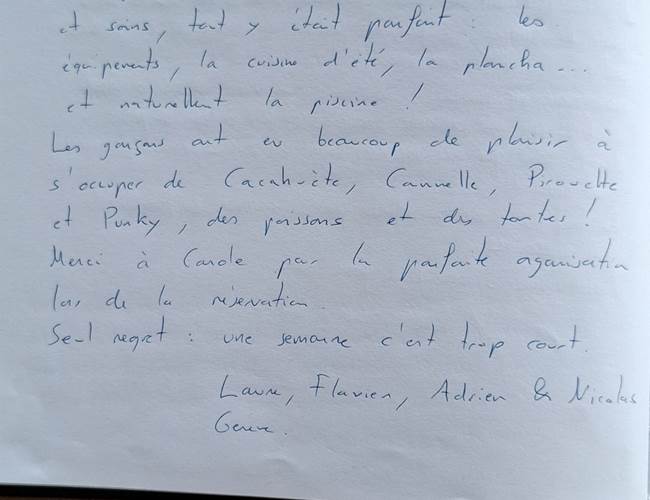 et soins, tout y était parfait : les
équipements, la cuisine d'été, la plancha...
et naturellement la piscine !
Les garçons ont eu beaucoup de plaisir à
s'occuper de Cacahuète, Cannelle, Pirouette
et Punky, des poissons et des tortues !
Merci à Carole pour la parfaite organisation
lors de la réservation.
Seul regret : une semaine c'est trop court.
Laure, Flavien, Adrien & Nicolas
Genève.